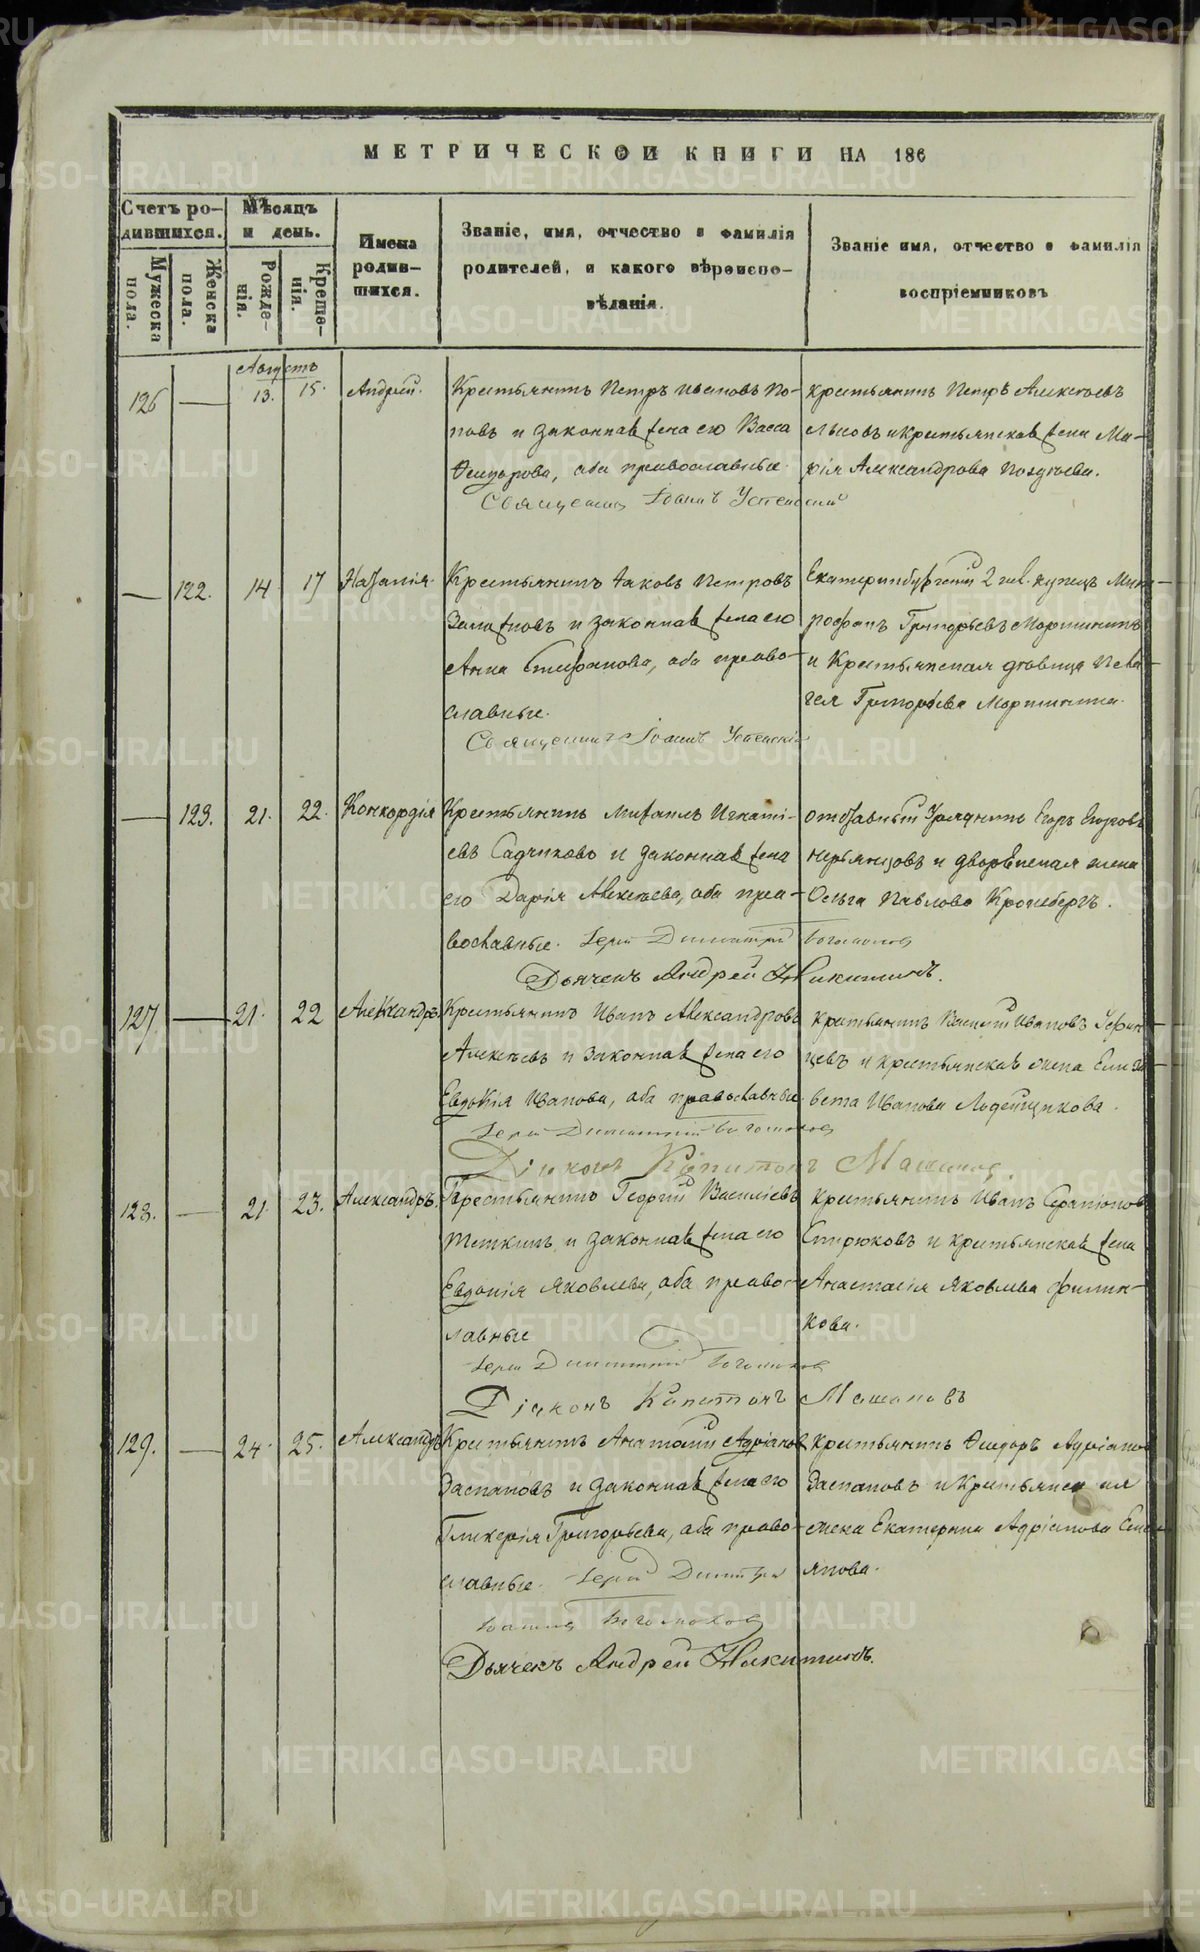 МЕТРИЧЕСКОЙ КНИГИ НА 186
Счетъ ро-
дившихся.
Мужеска пола.
Женска пола.
Мѣсяцъ
и день.
Рожде-
нія.
Креще-
нія.
Имена
родив-
шихся.
Званіе, имя, отчество и фамилія
родителей, и какого вѣроиспо-
вѣданія.
Званіе имя, отчество и фамилія
воспріемниковъ
Августъ
126 — 13. 15. Андрей.
Крестьянинъ Петръ Ивановъ По-
повъ и законная жена его Васса
Ѳедорова, оба православные.
Священникъ Іоаннъ Успенскій
крестьянинъ Петръ Алексѣевъ
и крестьянская жена Ма-
рія Александрова Поздѣева.
— 122. 14 17 Наталія.
Крестьянинъ Іаковъ Петровъ
и законная жена его
Анна Стефанова, оба право-
славные.
Священникъ Іоаннъ Успенскій
Екатеринбургскій 2 гил. купецъ Мит-
рофанъ Григорьевъ Мартининъ
и Крестьянская дѣвица Пела-
гея Григорьева Мартинина.
— 123. 21. 22. Конкордія
Крестьянинъ Михаилъ Игнаті-
евъ Садчиковъ и законная жена
его Дарія Алексѣева, оба пра-
вославные. Іерей Димитрій Богомоловъ
Дьячекъ Андрей Никитинъ.
отставный Урядникъ Егоръ Егоровъ
и дворянская жена
Ольга Павлова Кронебергъ.
127 — 21. 22 Александръ.
Крестьянинъ Иванъ Александровъ
Алексѣевъ и законная жена его
Евдокія Иванова, оба православные.
Іерей Димитрій Богомоловъ
Діаконъ Капитонъ Машановъ
крестьянинъ Василій Ивановъ
и крестьянская жена Елиза-
вета Иванова Ладейщикова.
128. — 21 23. Александръ.
Крестьянинъ Георгій Василіевъ
Теткинъ и законная жена его
Евдокія Яковлева, оба право-
славные
Іерей Димитрій Богомоловъ
Діаконъ Капитонъ Машановъ
крестьянинъ Иванъ Серапіоновъ
Стрюковъ и крестьянская жена
Анастасія Яковлева Филин-
кова.
129. — 24. 25. Александръ
Крестьянинъ Анатолій Адріановъ
Заспановъ и законная жена его
Гликерія Григорьева, оба право-
славные. Іерей Димитрій
Іоанновъ Богомоловъ
Дьячекъ Андрей Никитинъ.
крестьянинъ Ѳедоръ Адріановъ
Заспановъ и Крестьянская
жена Екатерина Адріанова
METRIKI.GASO-URAL.RU